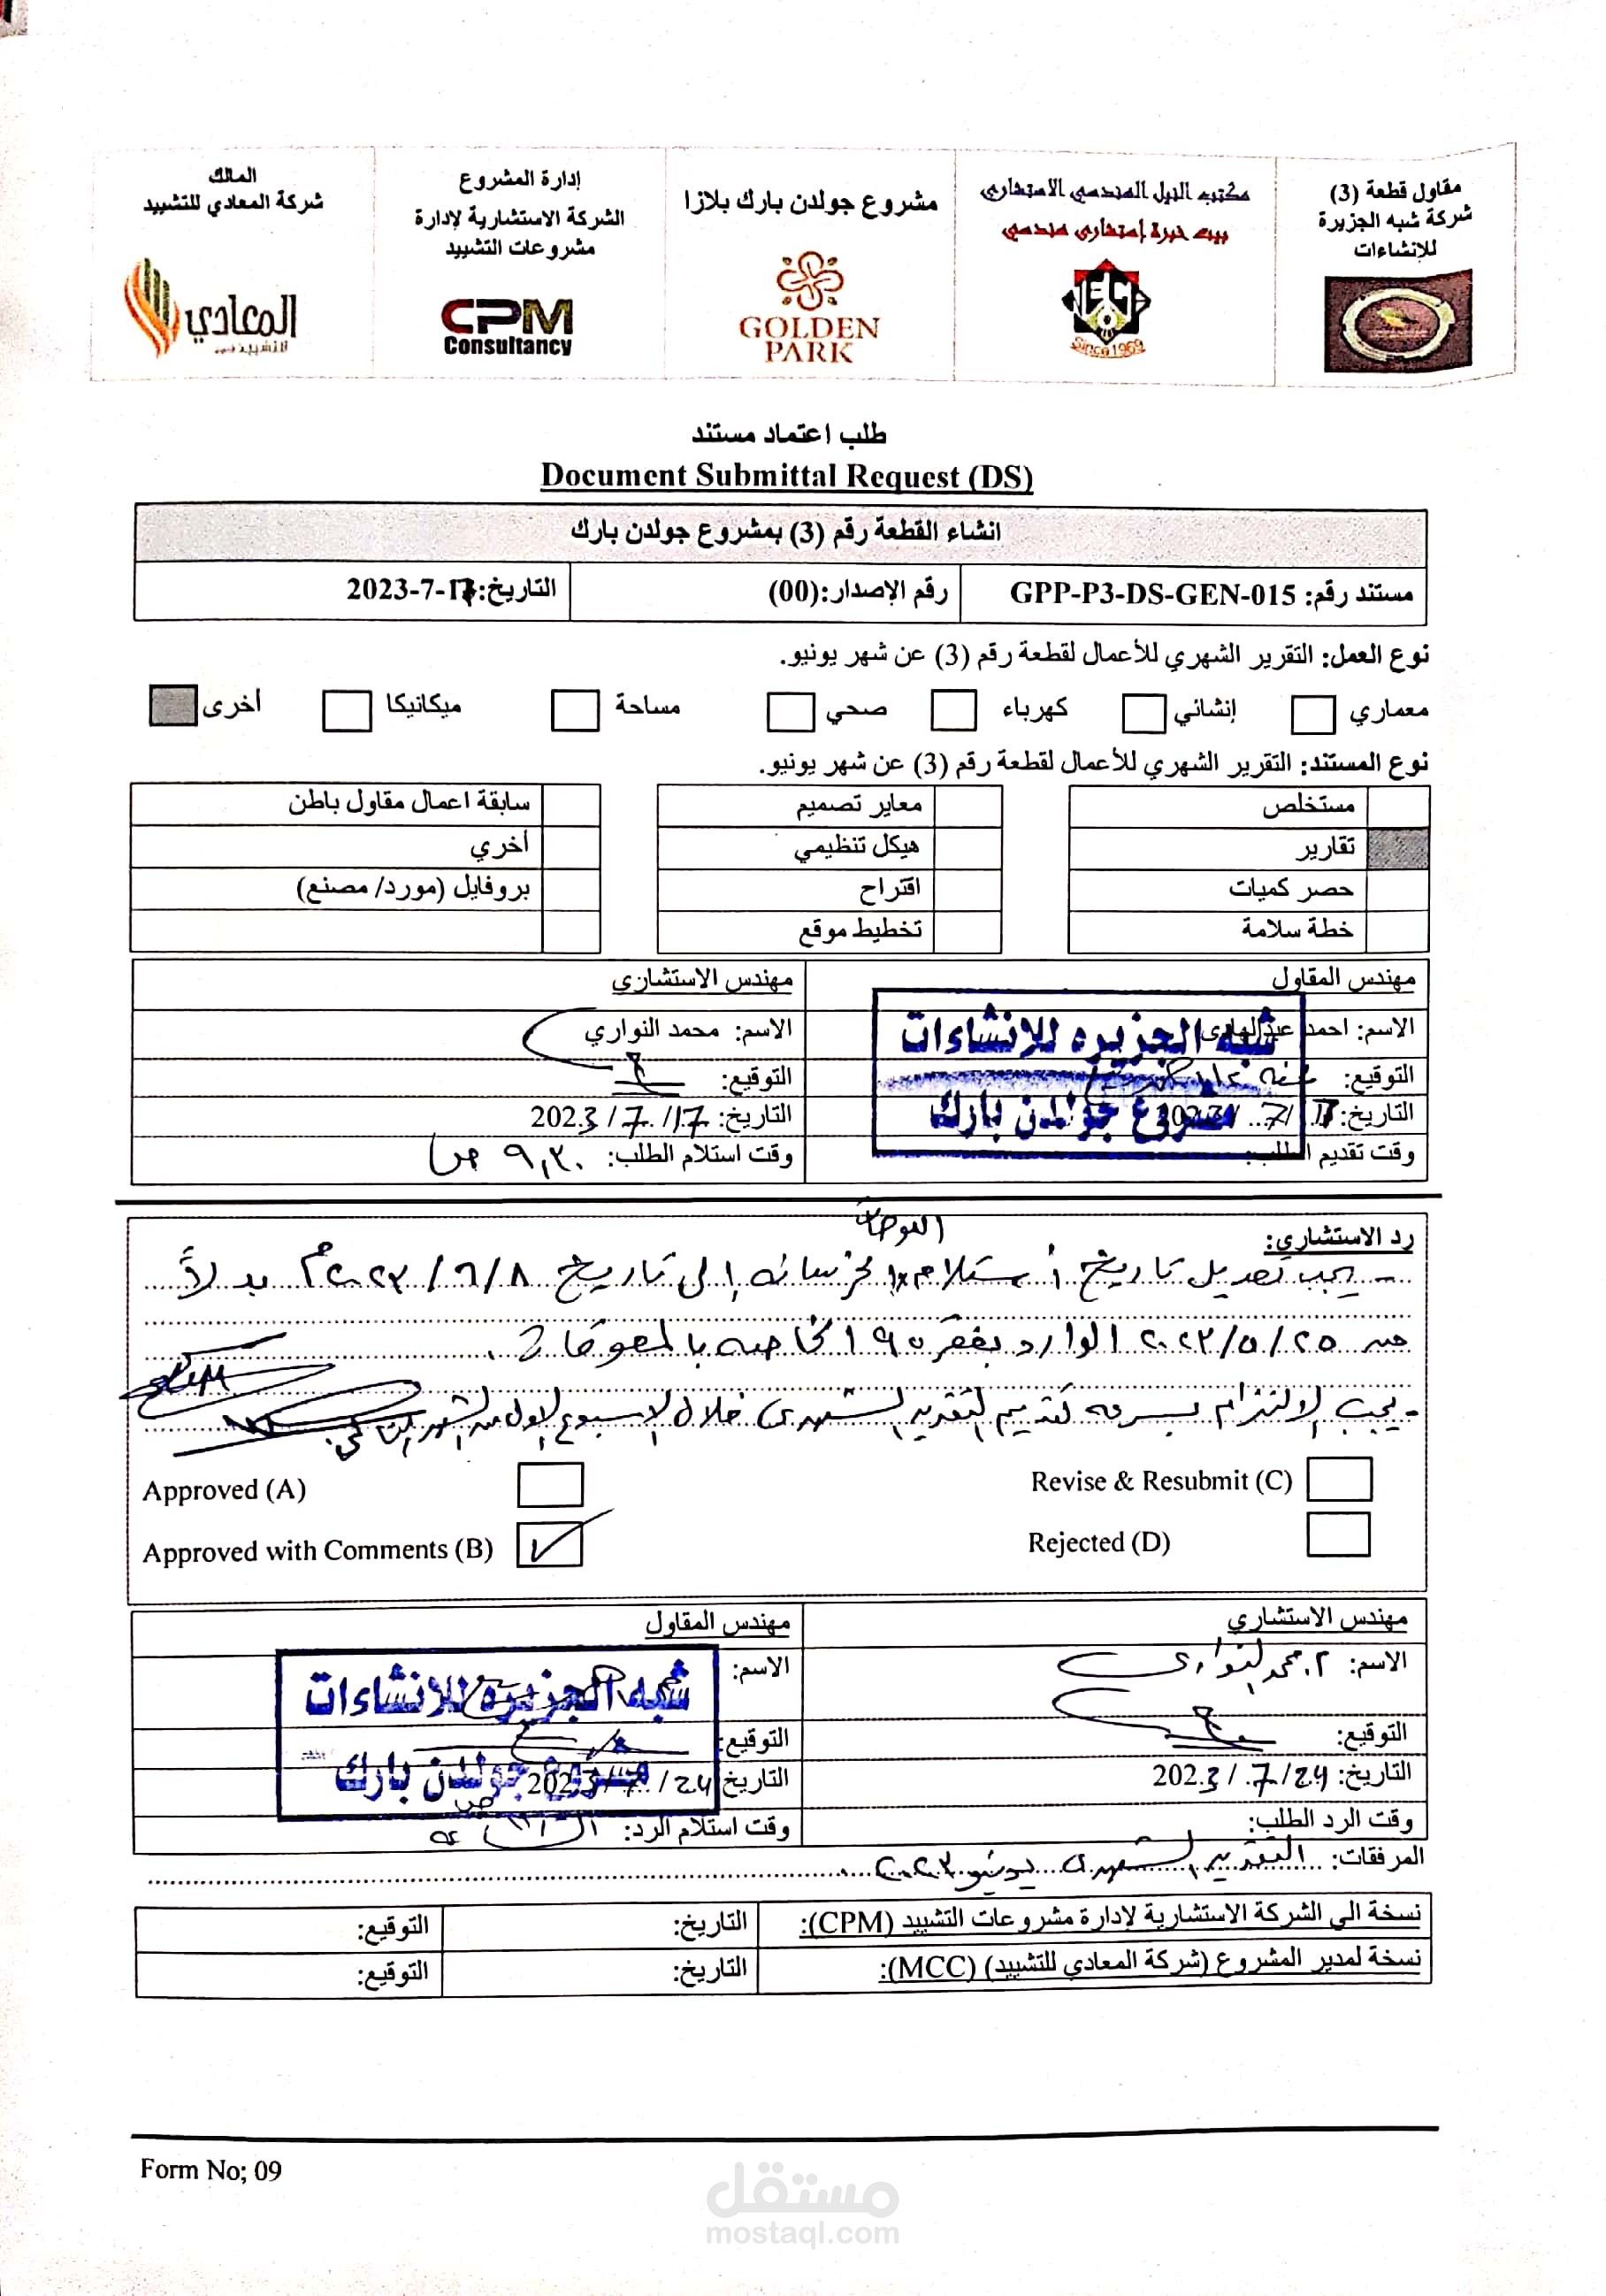 مقاول قطعة (3)
شركة شبه الجزيرة
للإنشاءات
مكتب النيل الهندسي الاستشارى
بيت خبرة إستشارى هندسي
NECB
Since 1969
مشروع جولدن بارك بلازا
GOLDEN
PARK
إدارة المشروع
الشركة الاستشارية لإدارة
مشروعات التشييد
CPM
Consultancy
المالك
شركة المعادي للتشييد
المعادي
للتشييد
طلب اعتماد مستند
Document Submittal Request (DS)
انشاء القطعة رقم (3) بمشروع جولدن بارك
مستند رقم: GPP-P3-DS-GEN-015 رقم الإصدار:(00) التاريخ: 17-7-2023
نوع العمل: التقرير الشهري للأعمال لقطعة رقم (3) عن شهر يونيو.
معماري إنشائي كهرباء صحي مساحة ميكانيكا أخرى
نوع المستند: التقرير الشهري للأعمال لقطعة رقم (3) عن شهر يونيو.
مستخلص معاير تصميم سابقة اعمال مقاول باطن
تقارير هيكل تنظيمي أخري
حصر كميات اقتراح بروفايل (مورد/ مصنع)
خطة سلامة تخطيط موقع
مهندس المقاول مهندس الاستشارى
الاسم: احمد عبدالهادى الاسم: محمد النواري
التوقيع: التوقيع:
التاريخ: 17/7/2023 التاريخ: 17/7/2023
وقت تقديم الطلب: وقت استلام الطلب: ٩,٣٠ ص
شبه الجزيره للانشاءات
مشروع جولدن بارك
رد الاستشاري:
- يجب تعديل تاريخ أستلام اللوحات الخرسانه إلى تاريخ ٢٠٢٣/٦/٨ م بدلاً
من ٢٠٢٣/٥/٢٥ الوارد بفقره ٩ الخاصه بالمعوقات.
- يجب الالتزام بسرعه تقديم التقرير الشهرى خلال الاسبوع الاول من الشهر التالى.
Approved (A) Revise & Resubmit (C)
Approved with Comments (B) Rejected (D)
مهندس الاستشاري مهندس المقاول
الاسم: م. محمد النوارى الاسم:
التوقيع: التوقيع:
التاريخ: 24/7/2023 التاريخ: 24/7/2023
وقت الرد الطلب: وقت استلام الرد:
شبه الجزيره للانشاءات
مشروع جولدن بارك
المرفقات: التقرير الشهرى يونيو ٢٠٢٣
نسخة الي الشركة الاستشارية لإدارة مشروعات التشييد (CPM): التاريخ: التوقيع:
نسخة لمدير المشروع (شركة المعادي للتشييد) (MCC): التاريخ: التوقيع:
Form No; 09
مستقل
mostaql.com